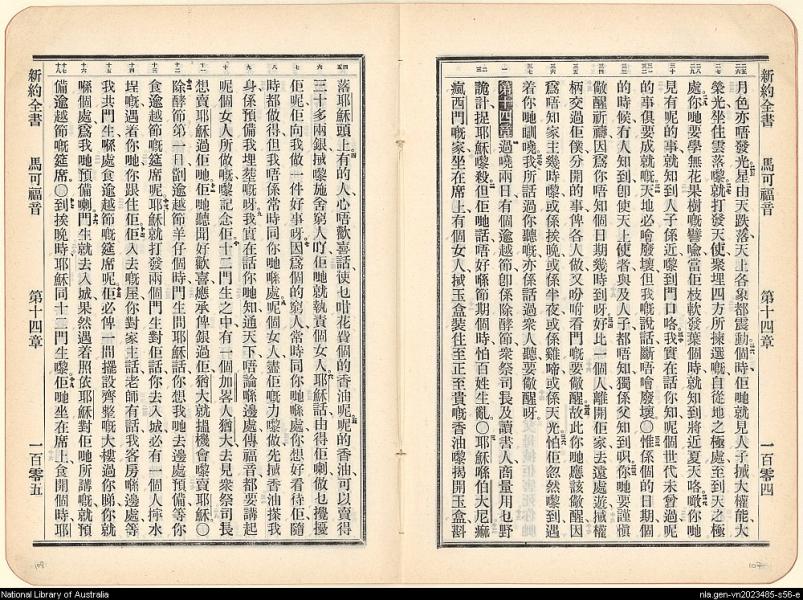 新約全書　馬可福音　第十四章　一百零四
月色亦唔發光星由天跌落天上各象都震動個時佢哋就見人子𢬿大權能大
榮光坐住雲落嚟就打發天使聚埋四方所揀選嘅自從地之極處至到天之極
處你哋要學無花果樹嘅譬喻當佢枝軟發葉個時就知到將近夏天咯噉你哋
見有呢的事就知到人子係近嚟到門口咯我實在話你知呢個世代未曾過呢
的事俱要成就嘅天地必噲廢壞但我嘅說話斷唔噲廢壞〇惟係個的日期個
的時候有人知到卽使天上使者與及人子都唔知獨係父知到啫你哋要謹愼
儆醒祈禱因爲你唔知個日期幾時到呀好比一個人離開佢家去遠處遊𢬿權
柄交過佢僕分開的事俾各人做又吩咐看門嘅要儆醒故此你哋應該儆醒因
爲唔知家主幾時嚟或係挨晚或係半夜或係雞啼或係天光怕佢忽然嚟到遇
着你哋瞓嘅我所話過你聽嘅亦係話過衆人聽要儆醒呀
第十四章過嘵兩日有個逾越節卽係除酵節衆祭司長及讀書人商量用乜野
詭計捉耶穌嚟殺但佢哋話唔好喺節期個時怕百姓生亂〇耶穌喺伯大尼痲
瘋西門嘅家坐在席上有個女人𢬿玉盒裝住至正至貴嘅香油嚟揭開玉盒斟
新約全書　馬可福音　第十四章　一百零五
落耶穌頭上有的人心唔歡喜話使乜咁花費個的香油呢呢的香油可以賣得
三十多兩銀𢬿嚟施舍窮人吖佢哋就執責個女人耶穌話由得佢喇做乜攪擾
佢呢佢向我做一件好事呀因爲個的窮人常時同你哋喺處你想好看待佢隨
時都做得但我唔係常時同你哋喺處呢個女人盡佢嘅力嚟做先𢬿香油搽我
身係預備我埋葬嘅呀我實在話你哋知通天下唔論喺邊處傳福音都要講起
呢個女人所做嘅嚟記念佢十二門生之中有一個加畧人猶大去見衆祭司長
想賣耶穌過佢哋佢哋聽聞好歡喜應承俾銀過佢猶大就搵機會嚟賣耶穌〇
除酵節第一日劏逾越節羊仔個時門生問耶穌話你想我哋去邊處預備等你
食逾越節嘅筵席呢耶穌就打發兩個門生對佢話你去入城必有一個人擰水
埕嘅遇着你哋你跟住佢佢入去嘅屋你對家主話老師有話我客房喺邊處等
我共門生喺處食逾越節嘅筵席呢佢必俾一間擺設齊整嘅大樓過你睇你就
喺個處爲我哋預備喇門生就去入城果然遇着照依耶穌對佢哋所講嘅就預
備逾越節嘅筵席〇到挨晚時耶穌同十二門生嚟佢哋坐在席上食開個時耶
National Library of Australia
nla.gen-vn2023485-s56-e